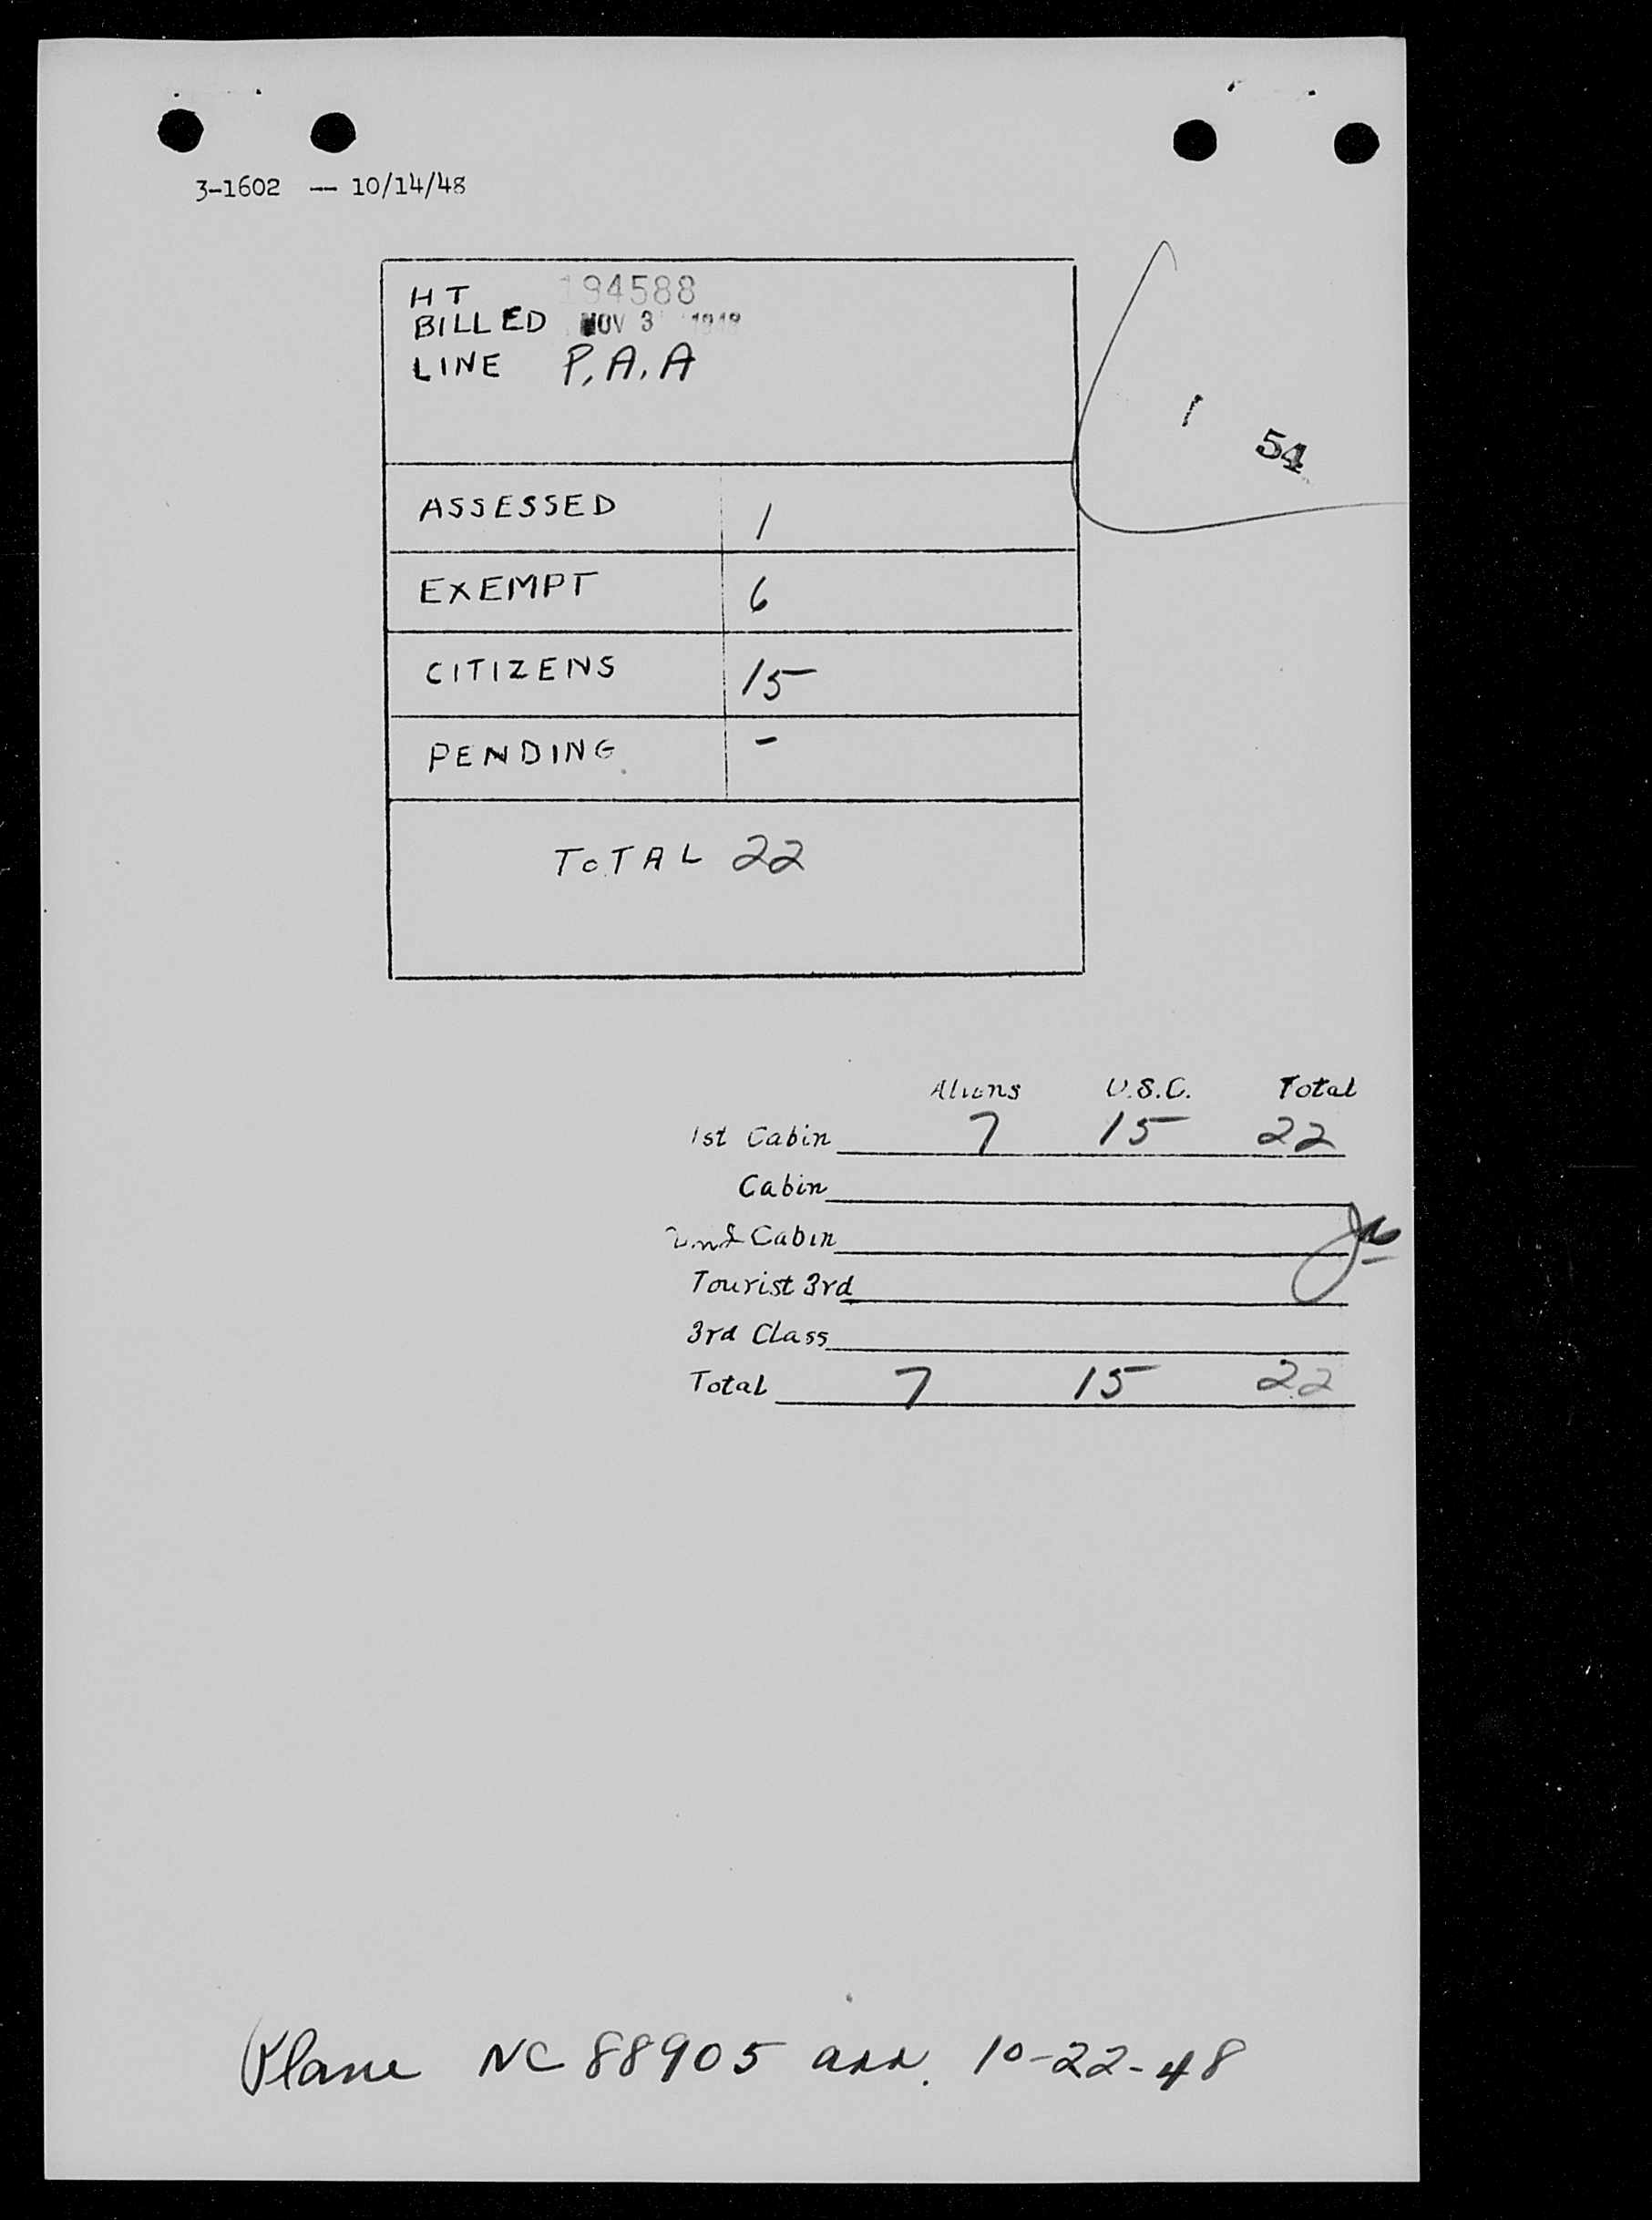 3-1602 — 10/14/48
HT 194588
BILLED NOV 3 1948
LINE P.A.A
1 54
ASSESSED 1
EXEMPT 6
CITIZENS 15
PENDING -
TOTAL 22
Aliens U.S.C. Total
1st Cabin 7 15 22
Cabin
2nd Cabin
Tourist 3rd
3rd Class
Total 7 15 22
Plane NC 88905 arr. 10-22-48